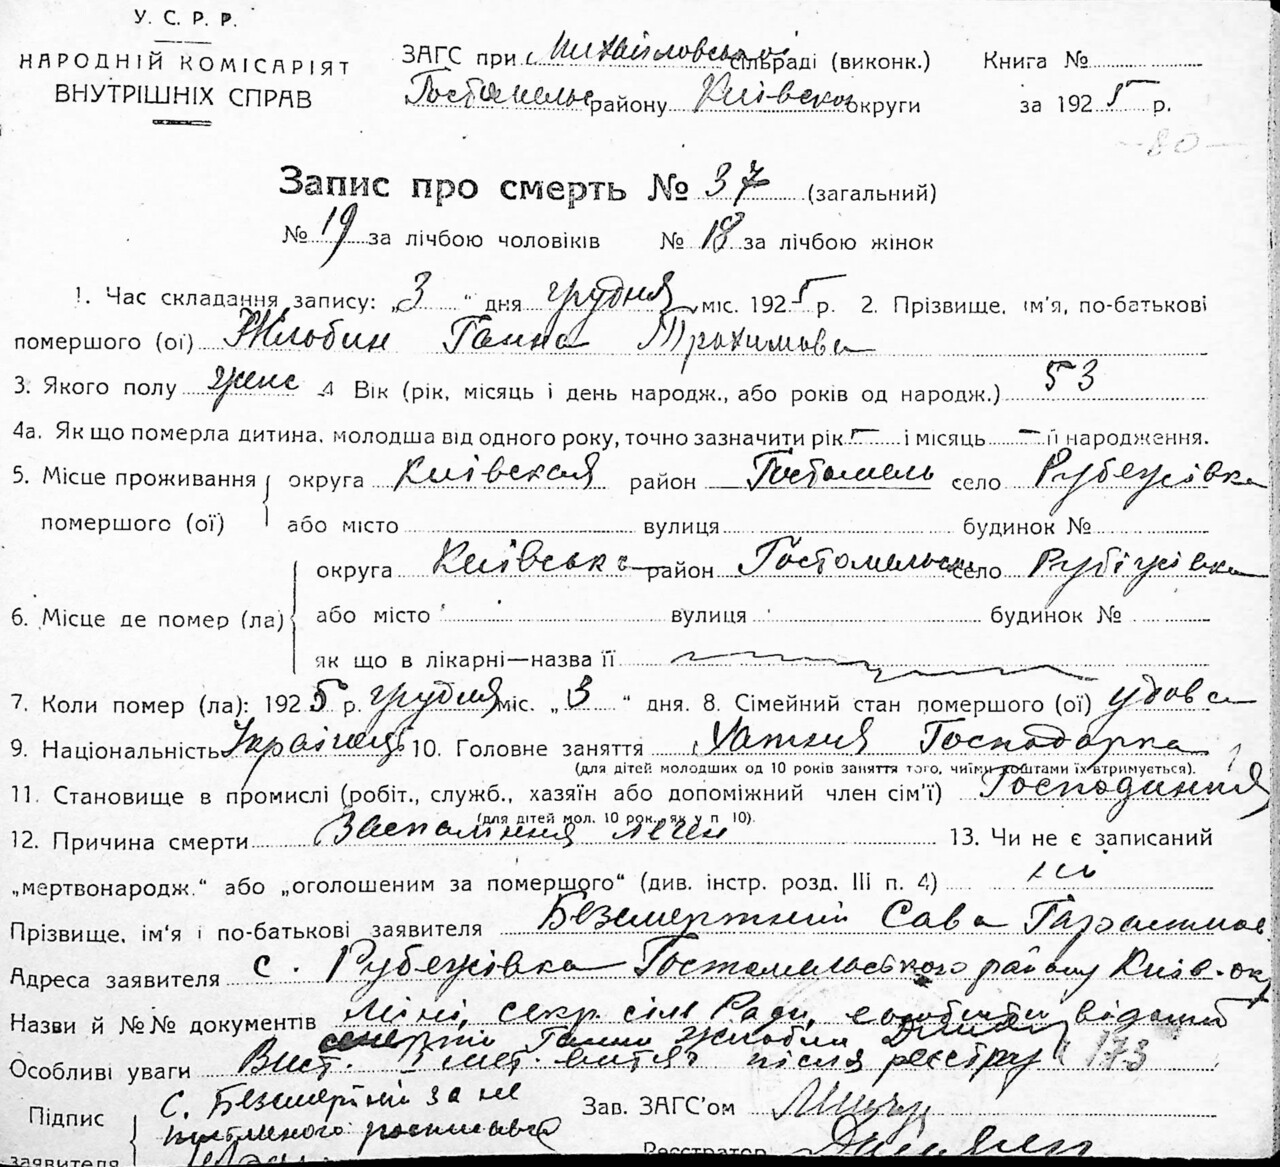 У. С. Р. Р.
НАРОДНІЙ КОМІСАРІЯТ
ВНУТРІШНІХ СПРАВ
ЗАГС при Михайловській сільраді (виконк.) Книга №
Гостомельс району Київской округи за 1925 р.
80
Запис про смерть № 37 (загальний)
№ 19 за лічбою чоловіків № 18 за лічбою жінок
1. Час складання запису: „3“ дня грудня міс. 1925 р. 2. Прізвище, ім'я, по-батькові
помершого (ої) Жлобин Ганна Трохимова
3. Якого полу женс 4 Вік (рік, місяць і день народж., або років од народж.) 53
4а. Як що померла дитина, молодша від одного року, точно зазначити рік – і місяць – її народження.
5. Місце проживання помершого (ої) округа Київская район Гостомель село Рубежівка
або місто вулиця будинок №
6. Місце де помер (ла) округа Київська район Гостомельськ село Рубіжівка
або місто вулиця будинок №
як що в лікарні—назва її
7. Коли помер (ла): 1925 р. грудня міс. „3“ дня. 8. Сімейний стан помершого (ої) удова
9. Національність Українці 10. Головне заняття Хатния Господарка
(для дітей молодших од 10 років заняття того, чиїми коштами їх втримується).
11. Становище в промислі (робіт., служб., хазяїн або допоміжний член сім'ї) Господиння
(для дітей мол. 10 рок., як у п 10).
12. Причина смерти Воспаління леген 13. Чи не є записаний
„мертвонародж.“ або „оголошеним за помершого“ (див. інстр. розд. III п. 4) ні
Прізвище, ім'я і по-батькові заявителя Безсмертний Сава Гарасимов
Адреса заявителя с. Рубежівка Гостомельського району Київ. ок
Назви й №№ документів секр сіль Ради,
Ганни Жлобин
Особливі уваги Вист. витяг після реєстру 173
Підпис заявителя С. Безсмертний за не
Зав. ЗАГС'ом
Реєстратор